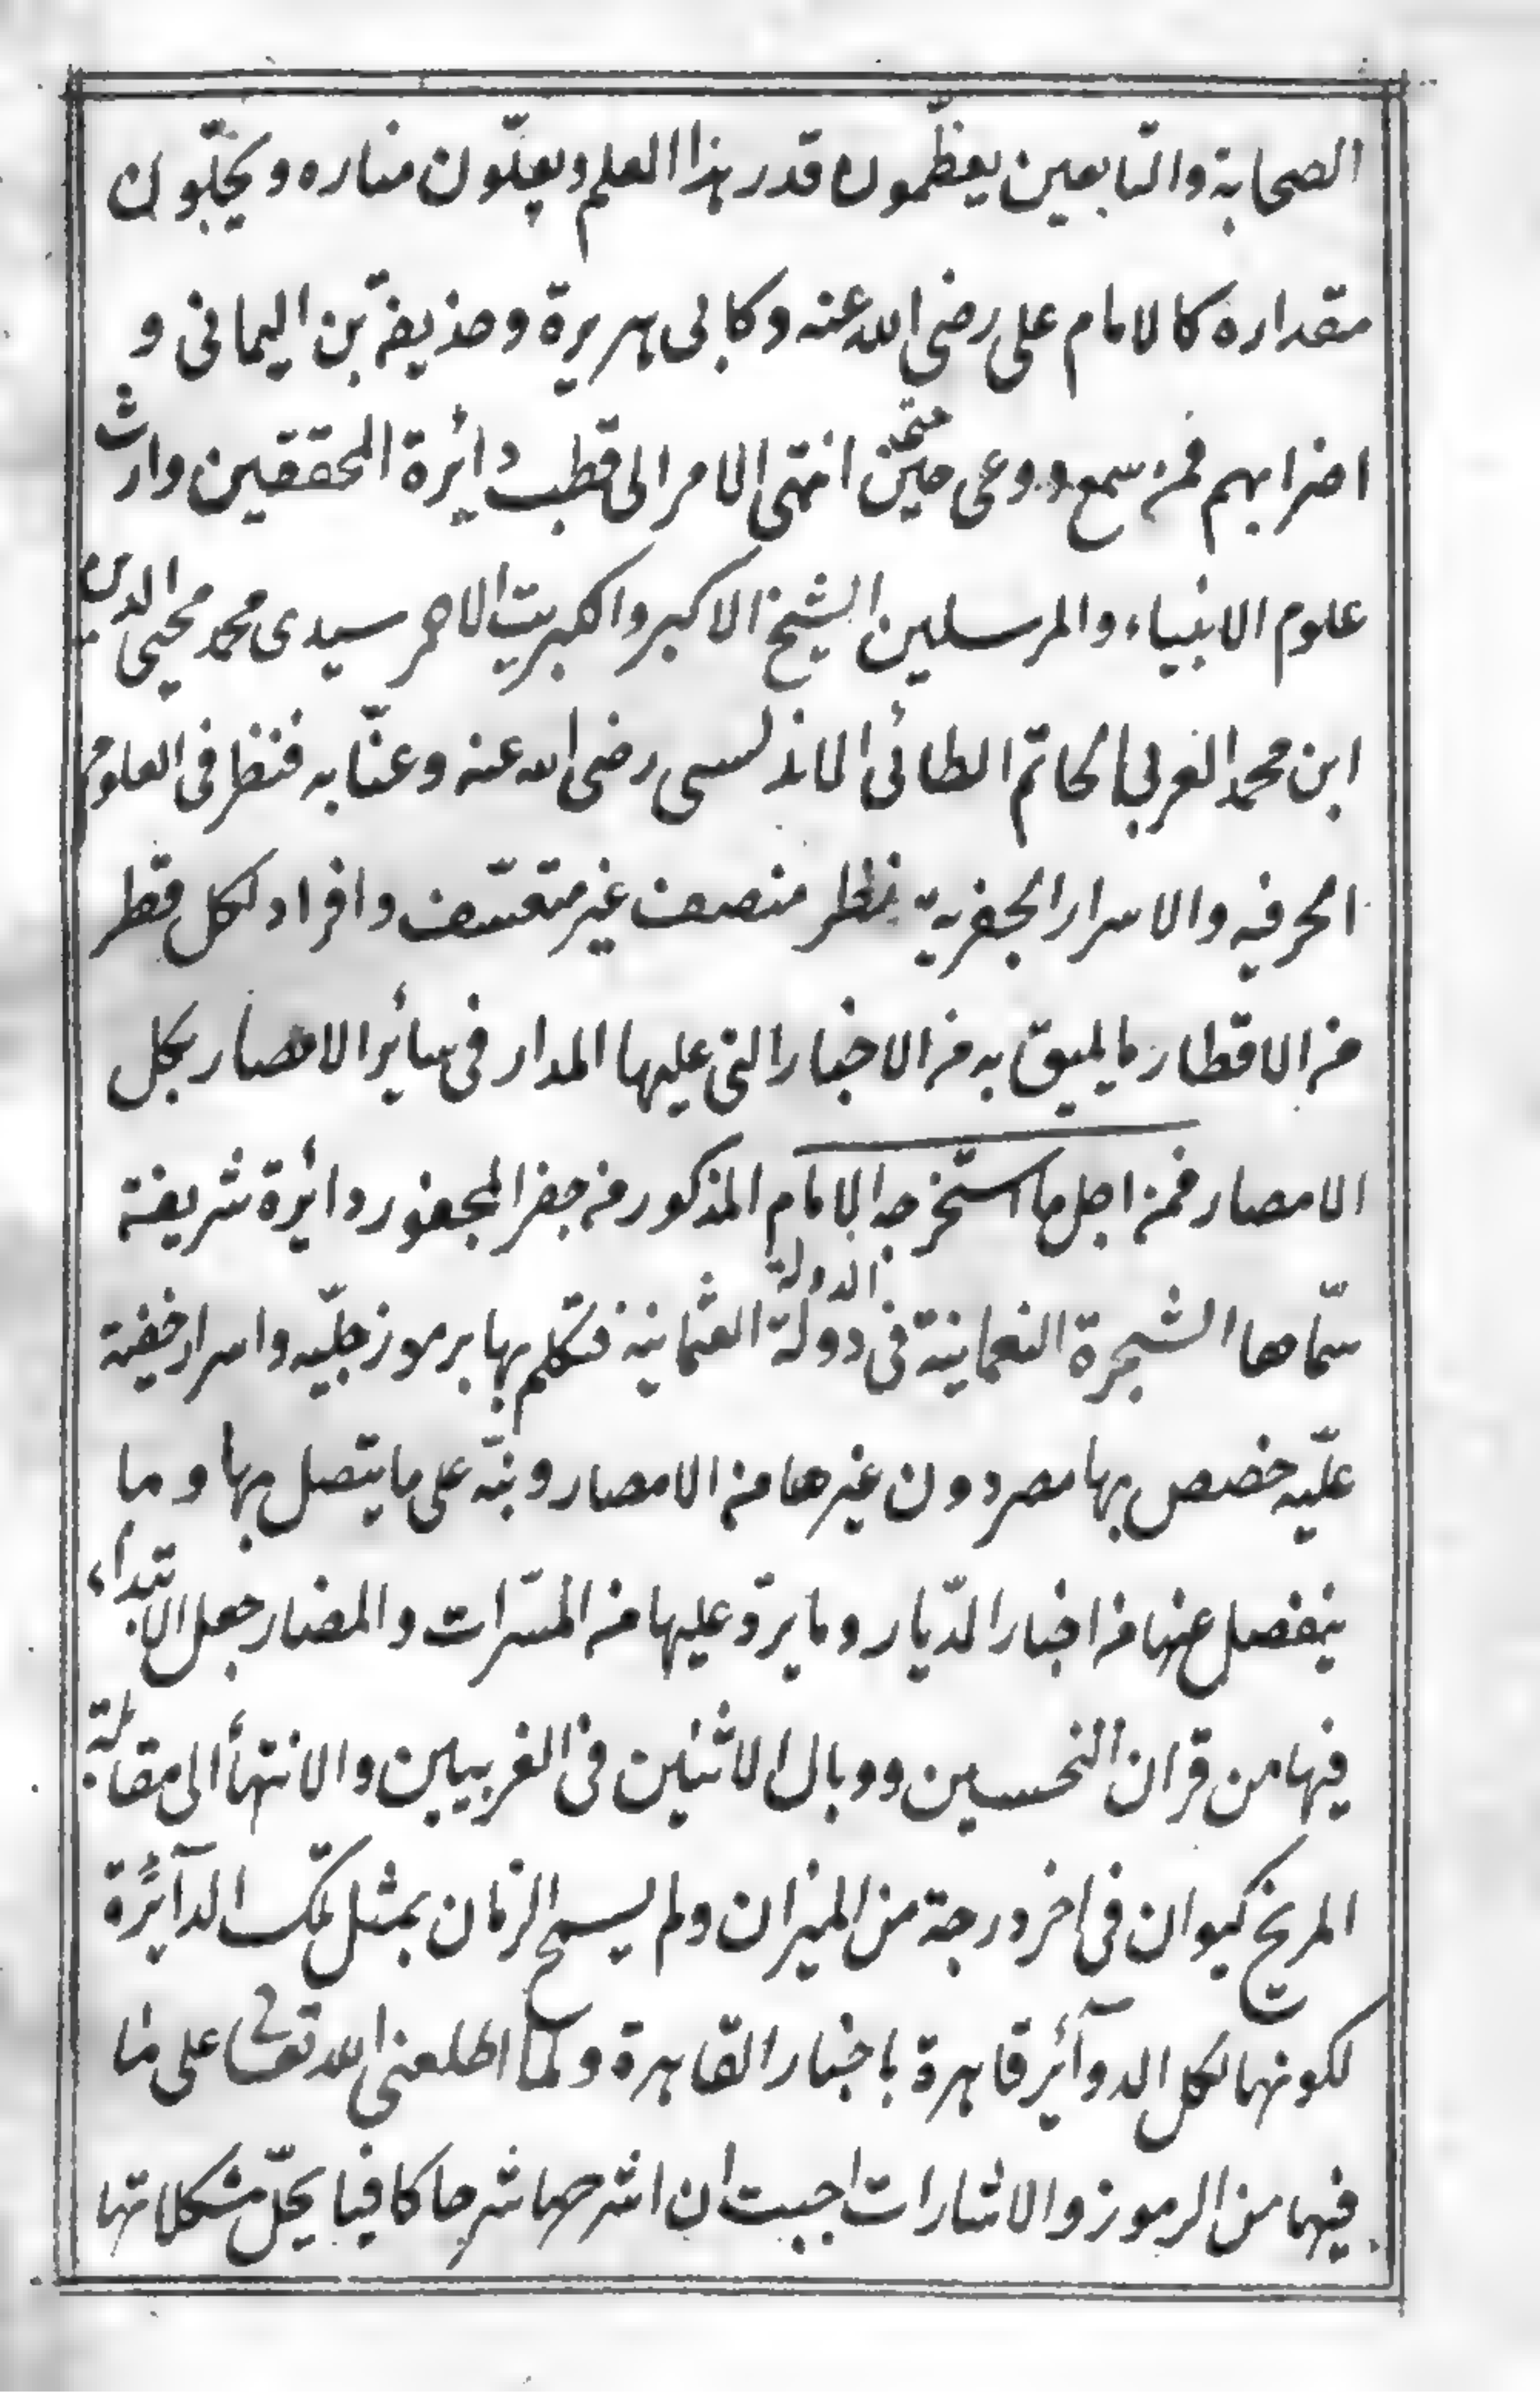 الصحابة والتّابعين يعظّمون قدر هذا العلم ويعلّون مناره ويجلّون
مقداره كالامام على رضى الله عنه وكابى هريرة وحذيفة بن اليمانى و
اضرابهم فمن سمع ووعى حتى انتهى الامر الى قطب دائرة المحققين وارث
علوم الانبياء والمرسلين الشيخ الاكبر والكبريت الاحمر سيدى محمد محيى الدين
ابن محمد العربى الحاتم الطائى الاندلسى رضى الله عنه وعنّا به فنظر فى العلوم
الحرفيه والاسرار الجفريّة نظر منصف غير متعسّف وافراد لكل قطر
من الاقطار ما يليق به من الاخبار التى عليها المدار فى سائر الامصار بكل
الامصار فمن اجل ما استخرجه الامام المذكور من جفر المجفور دائرة شريفة
سمّاها الشجرة النعمانية فى دولة الدولة العثمانية فتكلم بها برموز جليّه واسرار خفية
عليّه خصص بها مصر دون غيرها من الامصار ونبّه على ما يتصل بها وما
ينفصل عنها من اخبار الدّيار وما يردّ عليها من المسّرات والمضار جعل الابتداء
فيها من قران النحسين ووبال الاثنين فى الغربيين والانتهأ الى مقابلة
المريخ كيوان فى اخر درجة من الميزان ولم يسمح الزمان بمثل تلك الدآئرة
لكونها لكل الدوآئر قاهرة باخبار القاهرة ولما اطلعنى الله تعالى على ما
فيها من الرموز والاشارات احببت ان اشرحها شرحا كافيا يحلّ مشكلاتها